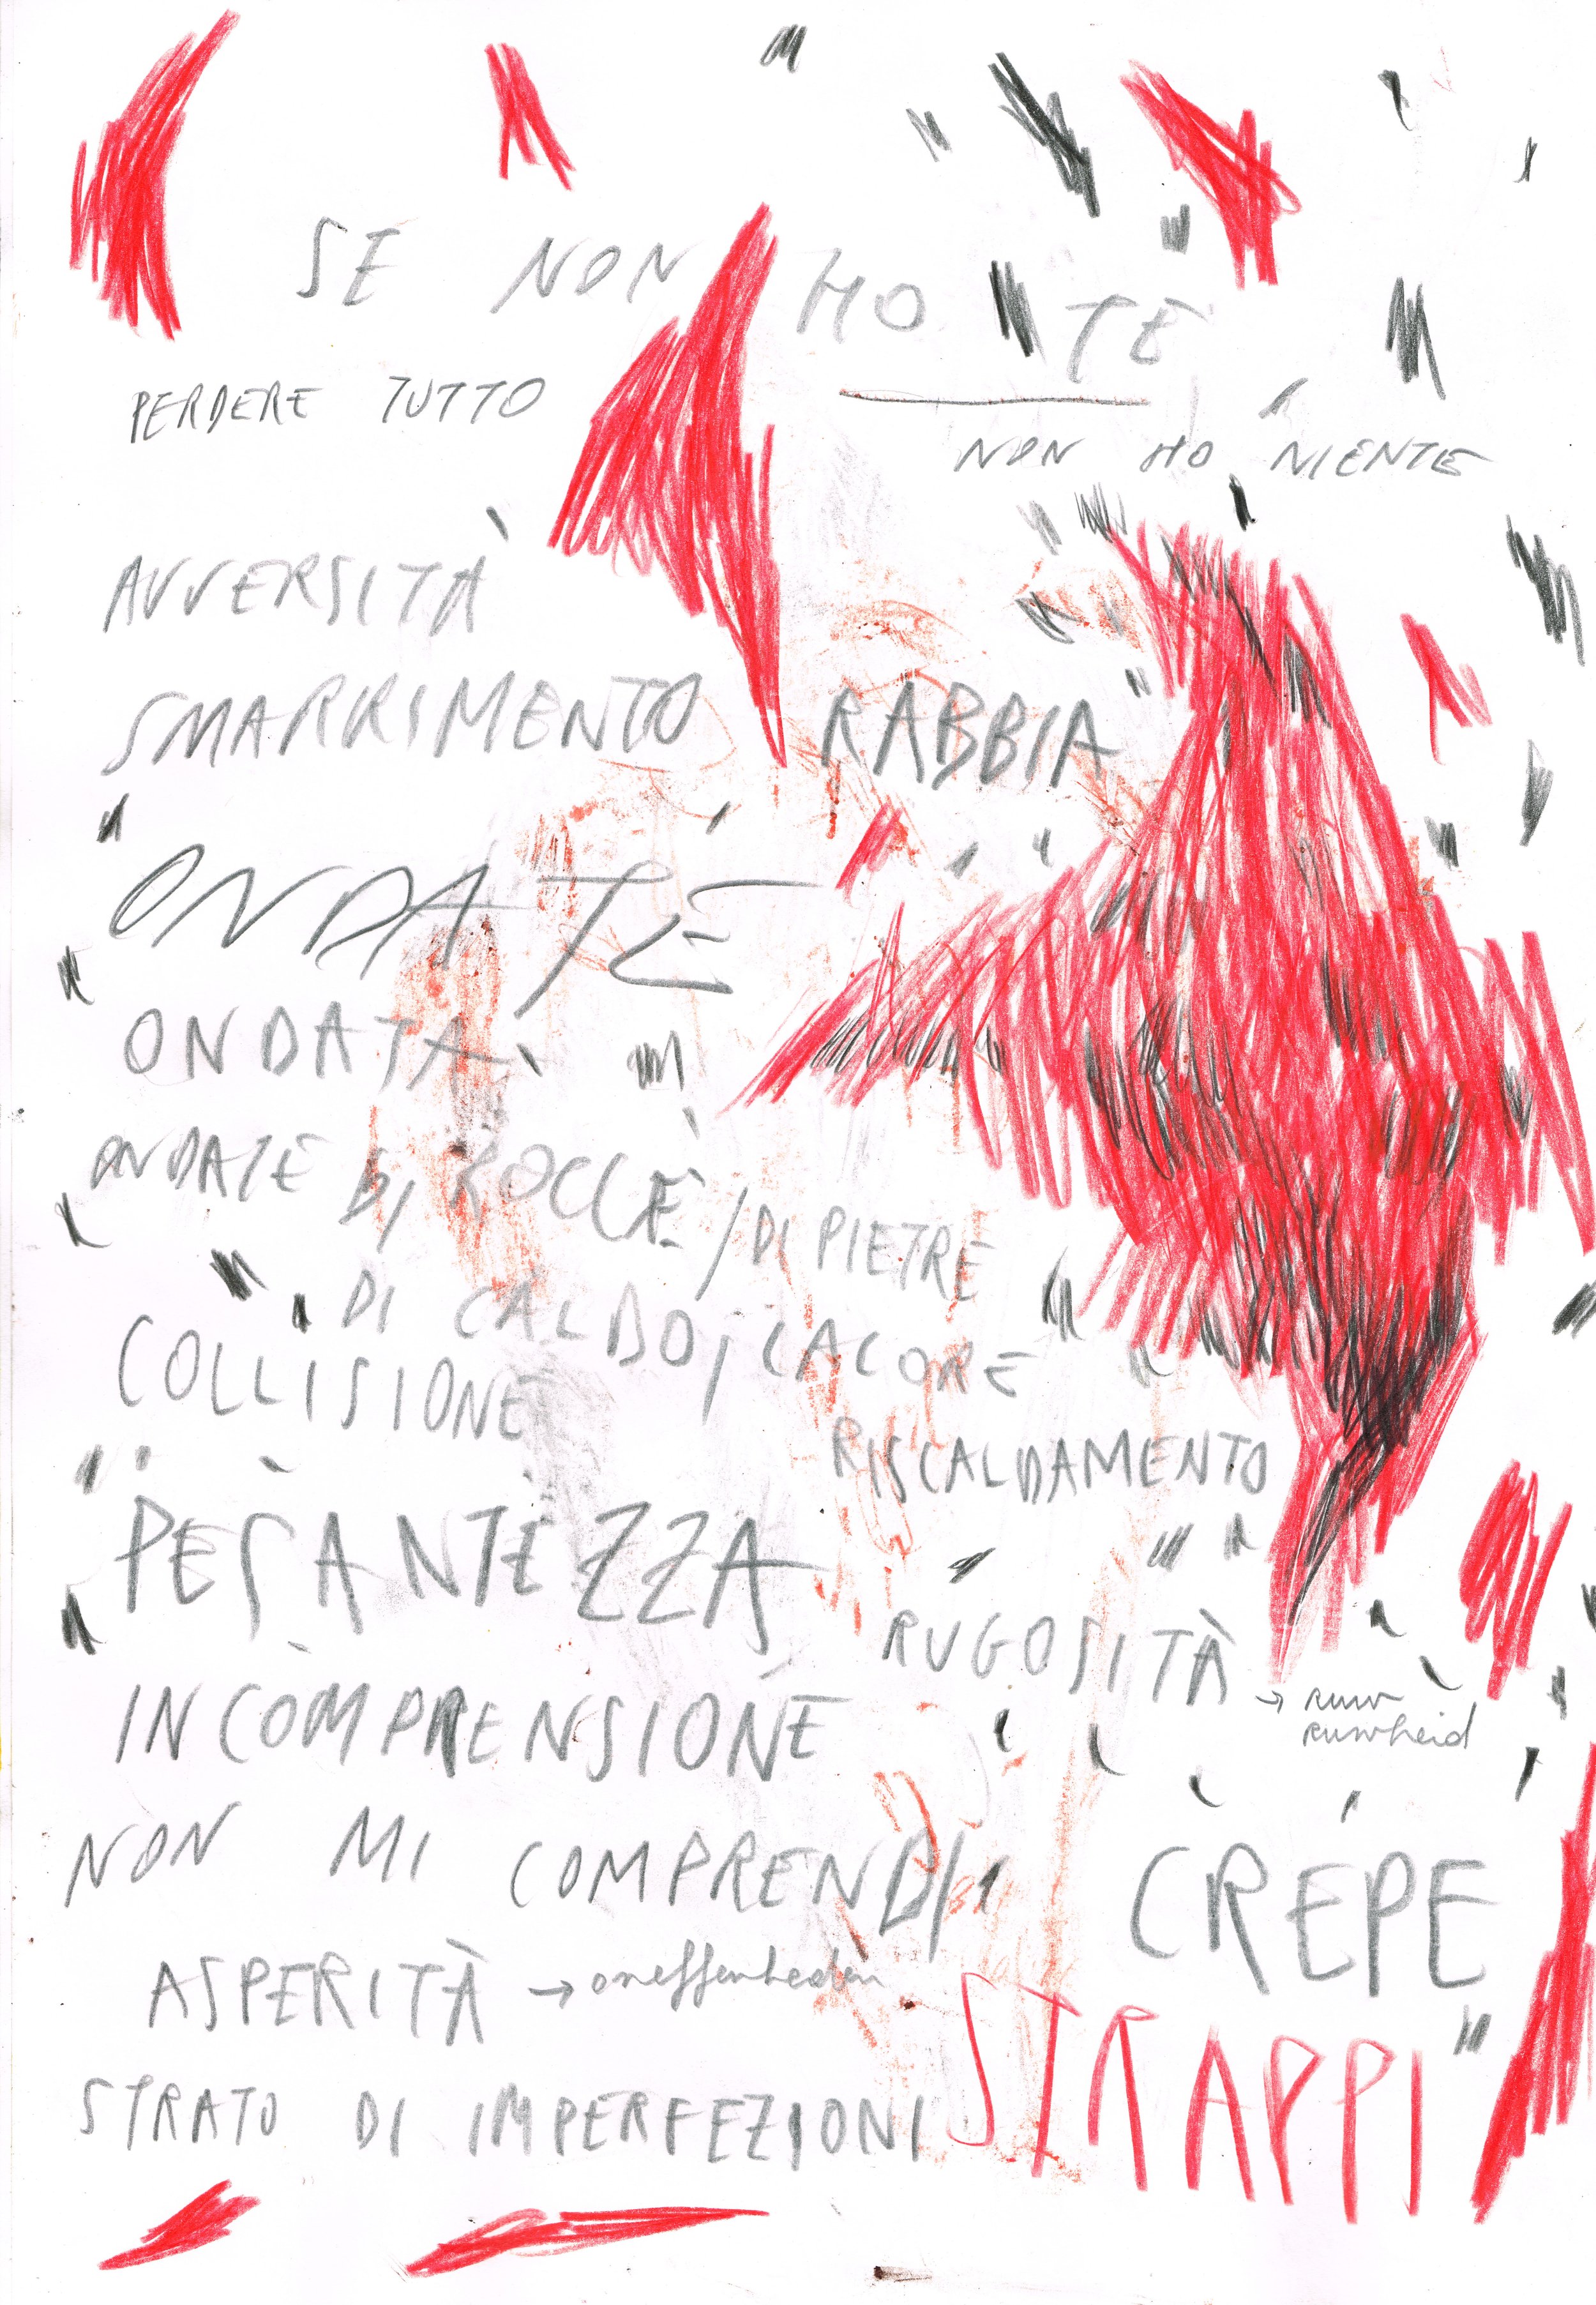 SE NON HO TE
PERDERE TUTTO
NON HO NIENTE
AVVERSITÀ
SMARRIMENTO
RABBIA
ONDATE
ONDATA
ONDATE DI ROCCE / DI PIETRE
DI CALDO, CALORE
COLLISIONE
RISCALDAMENTO
PESANTEZZA
RUGOSITÀ → ruw
ruwheid
INCOMPRENSIONE
NON MI COMPRENDI
CREPE
ASPERITÀ → oneffenheden
STRAPPI
STRATO DI IMPERFEZIONI